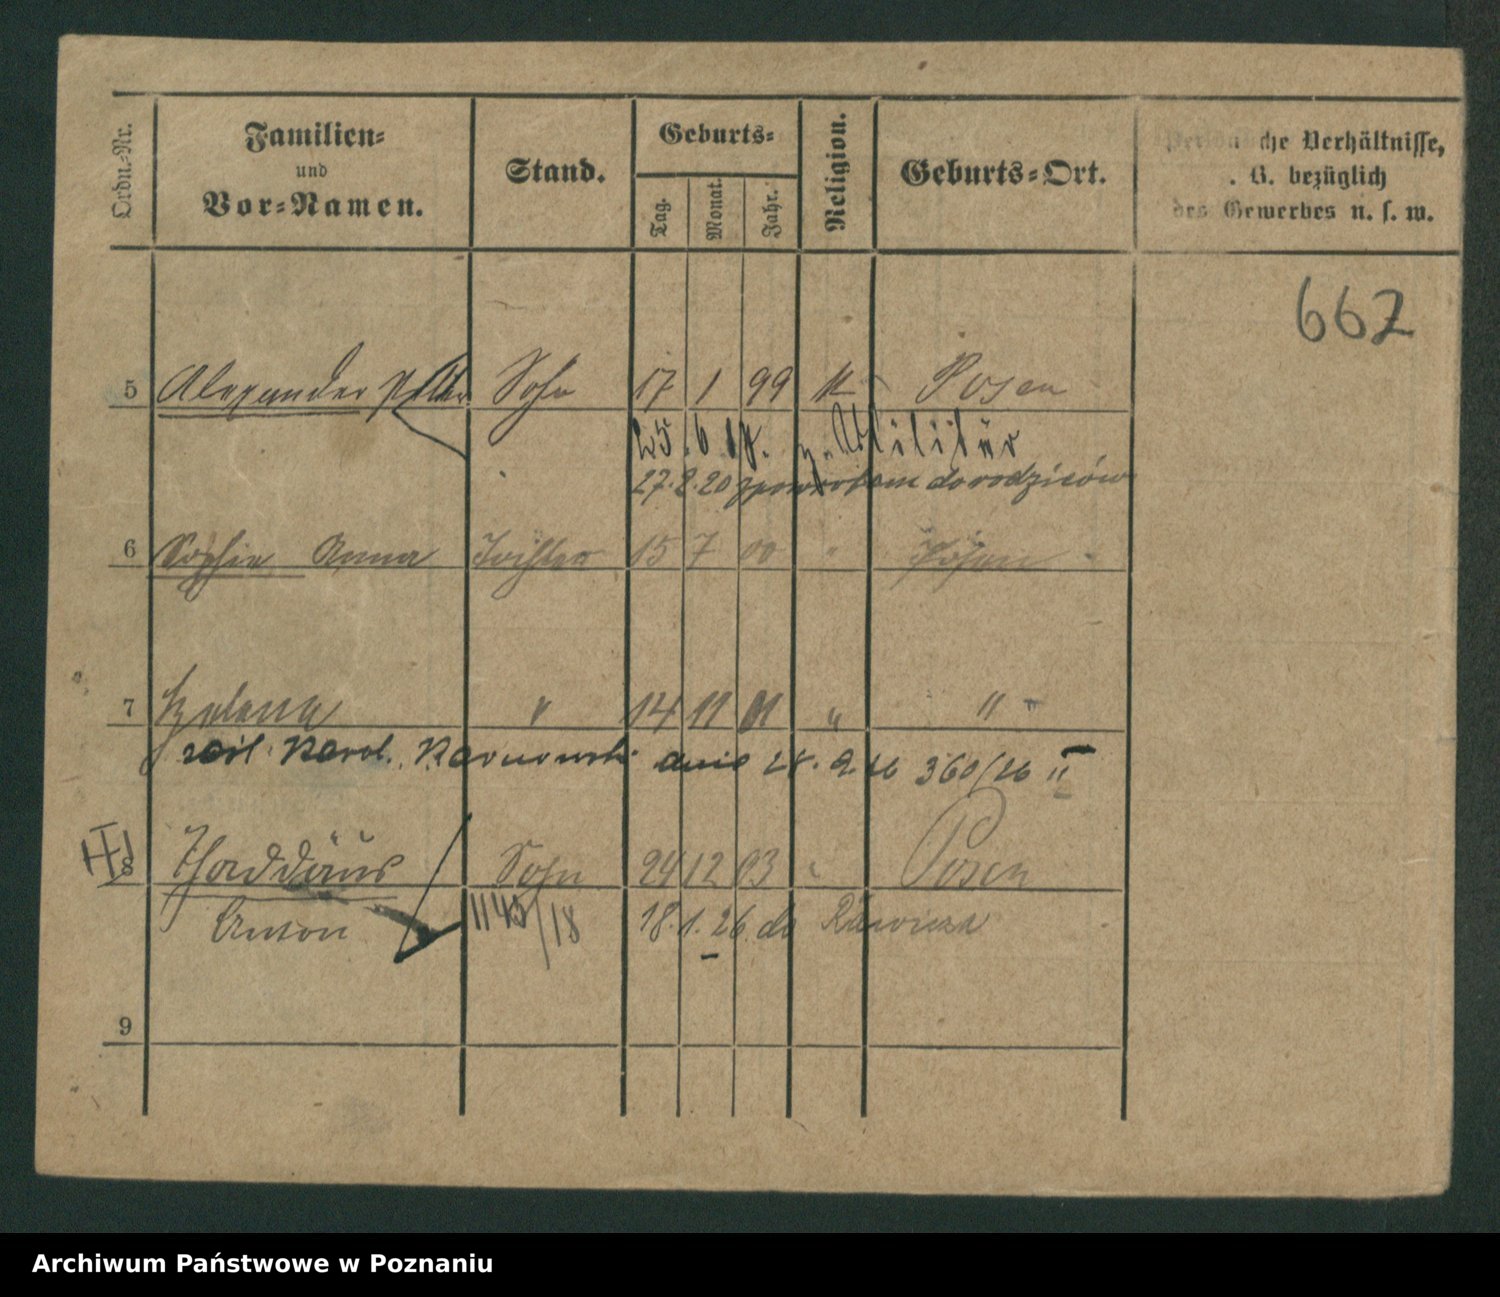 Ordn.-Nr.
Familien-
und
Vor-Namen.
Stand.
Geburts-
Tag.
Monat.
Jahr.
Religion.
Geburts-Ort.
Persönliche Verhältnisse,
. B. bezüglich
des Gewerbes u. s. w.
662
5 Alexander Sohn 17 1 99 k Posen
25.6.17. z. Militär
27.2.20 zpowrotem do rodziców
6 Sophie Anna Tochter 15 7 00 " Posen
7 Helena " 14 11 01 " "
Karol. Karnowski dnia 28.9.26 360/26 II
8 Thaddäus Sohn 24 12 03 " Posen
Anton 1145/18 18.1.26 do Rawicza
9
Archiwum Państwowe w Poznaniu